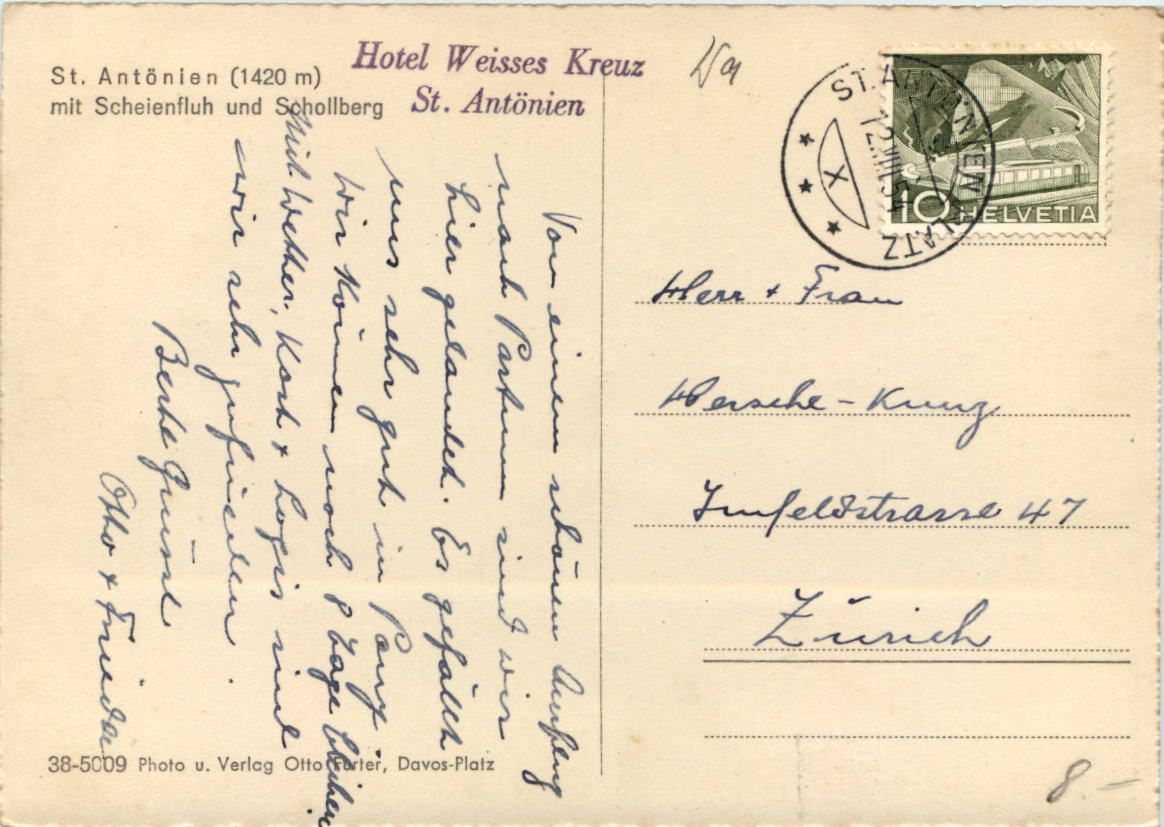 St. Antönien (1420 m)
mit Scheienfluh und Schollberg
Hotel Weisses Kreuz
St. Antönien
ST. ANTÖNIEN PLATZ
12.VIII.54
X
10 HELVETIA
Von einem schönen Ausflug
nach Partnun sind wir
hier gelandet. Es gefällt
uns sehr gut im Pany
wir können noch 8 Tage bleiben.
Mit Wetter, Kost + Logis sind
wir sehr zufrieden.
Beste Grüsse
Otto + Frieda
Herr + Frau
Hersche-Kunz
Imfeldstrasse 47
Zürich
38-5009 Photo u. Verlag Otto Furter, Davos-Platz
8.-